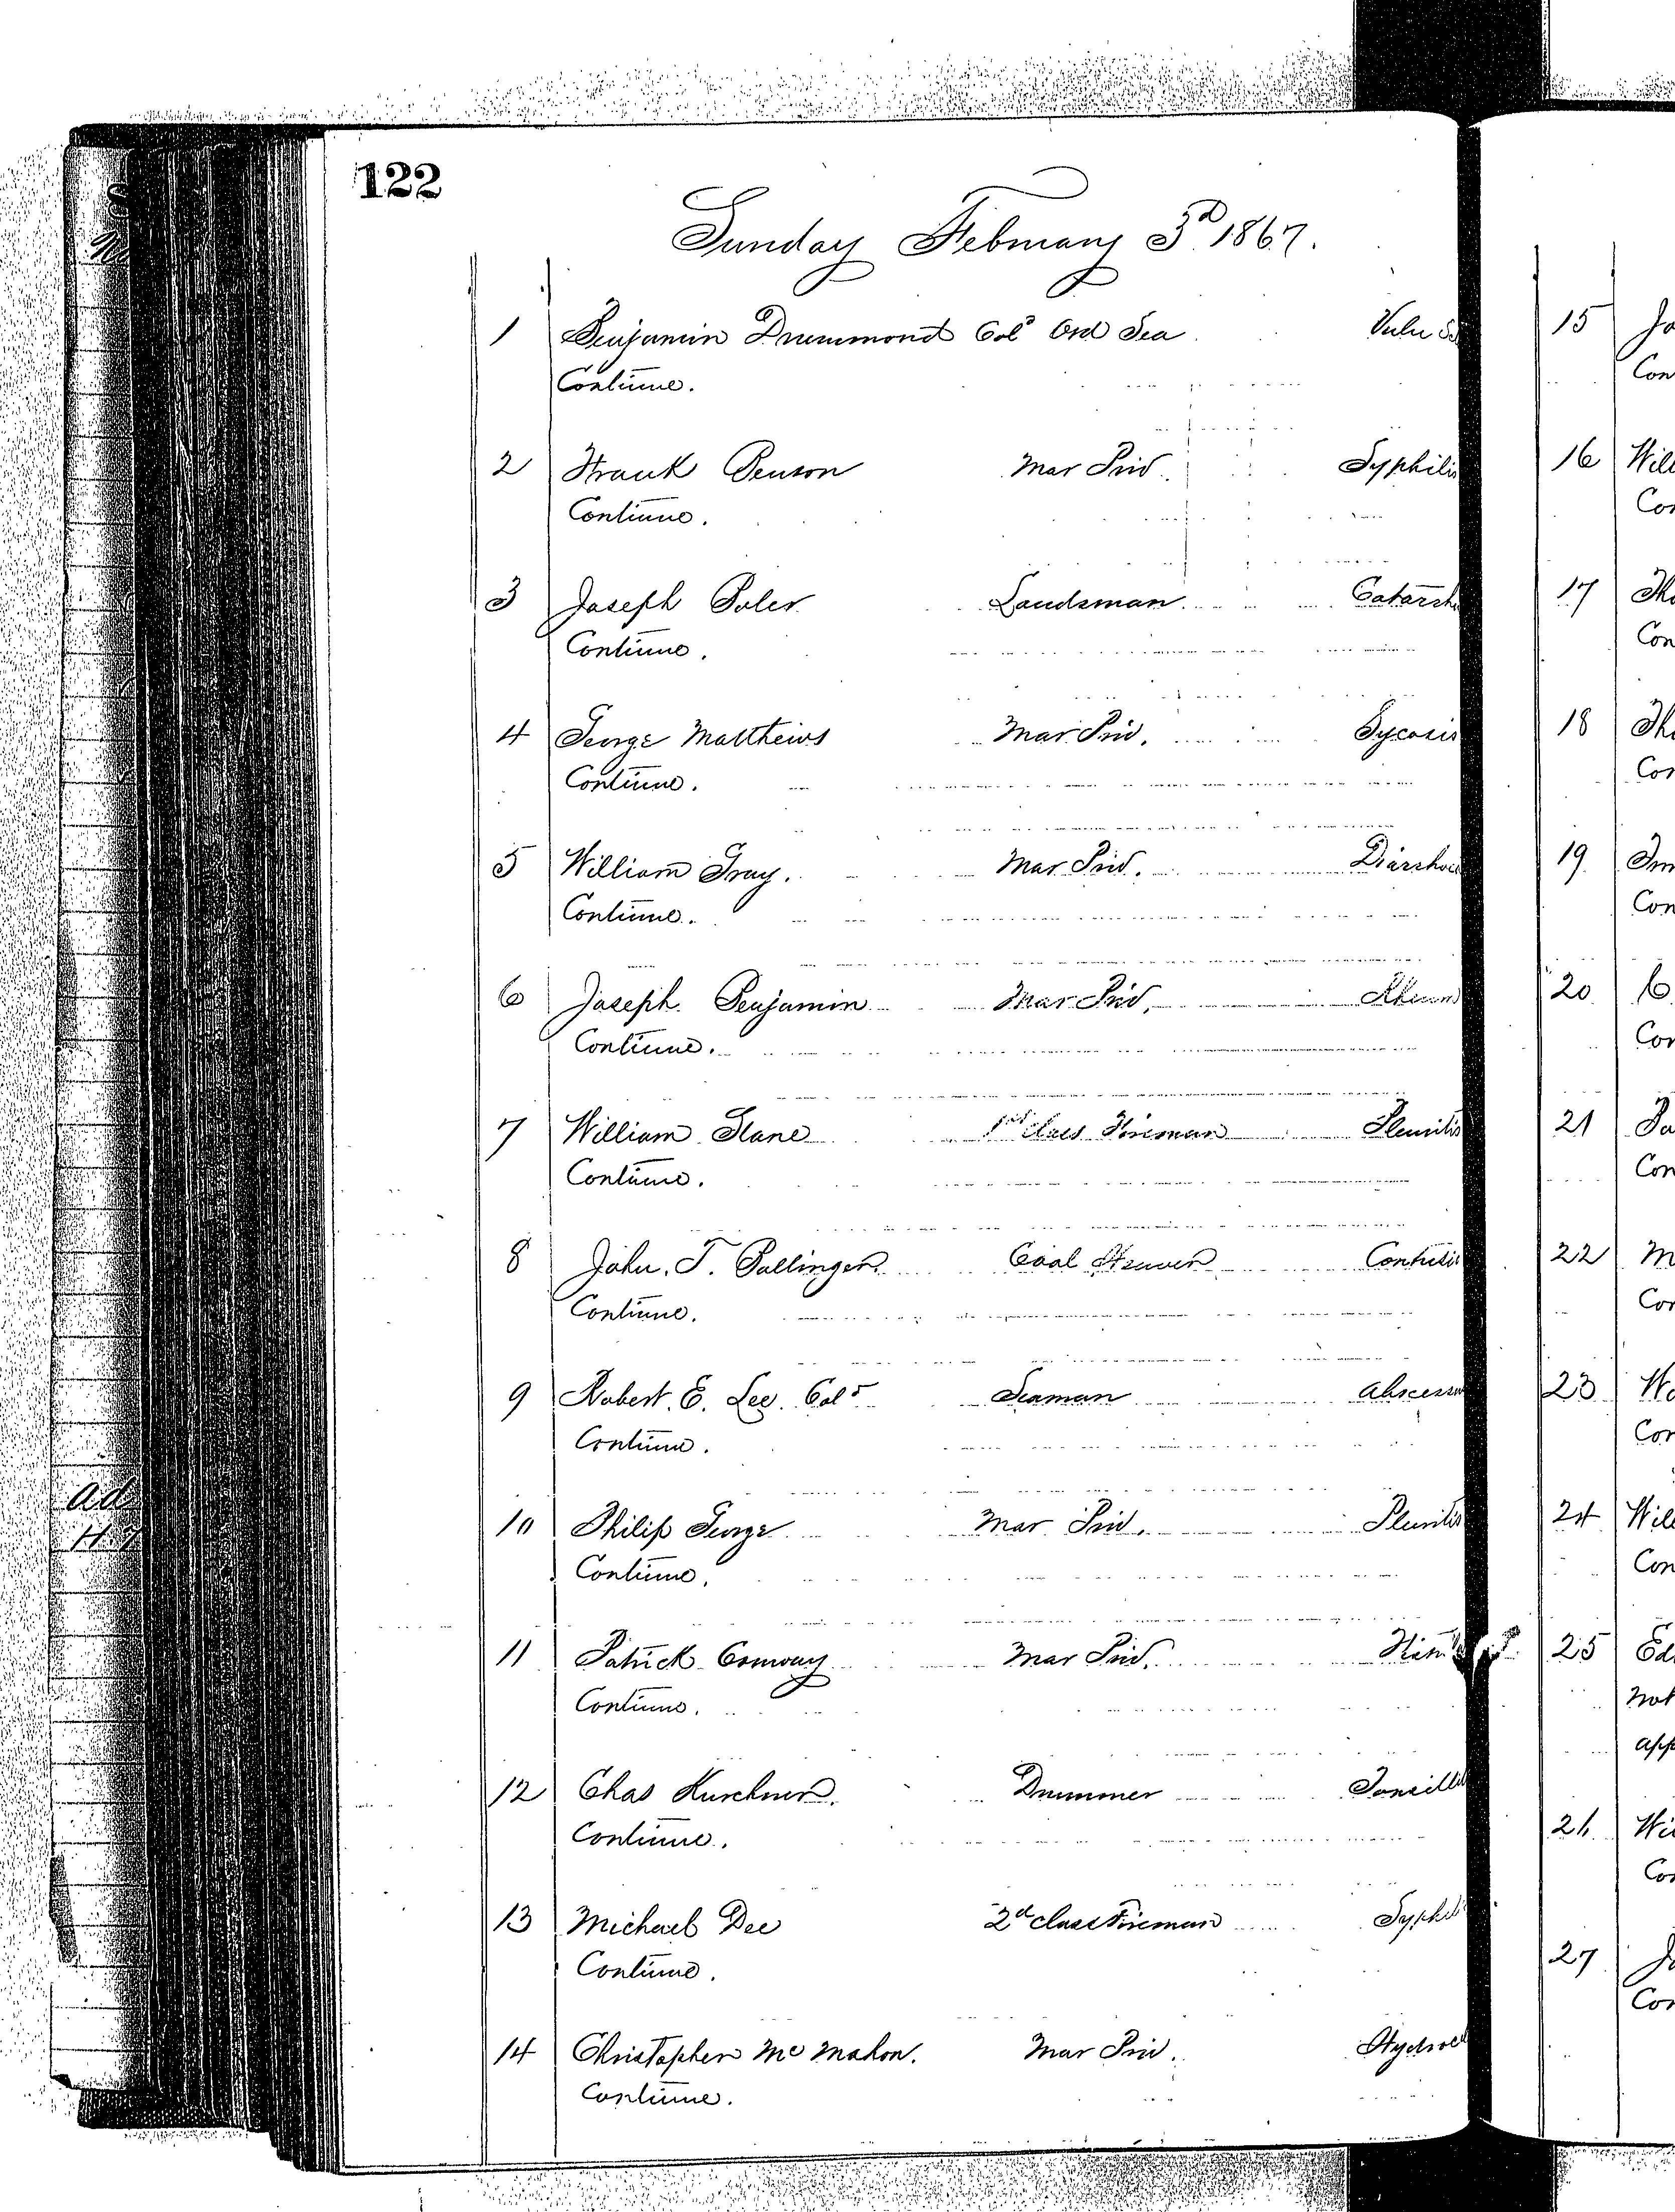 122
Sunday February 3d 1867.
1 Benjamin Drummond Cold Ord Sea Vuln
Continue.
2 Frank Benson Mar Priv. Syphilis
Continue.
3 Joseph Landsman Catarrh
Continue.
4 George Matthews Mar Priv. Sycosis
Continue.
5 William Gray. Mar Priv. Diarrhoe
Continue.
6 Joseph Benjamin Mar Priv. Rheum
Continue.
7 William Slane 1st Class Fireman Pleuritis
Continue.
8 John. T. Bollinger Coal Heaver Contusio
Continue.
9 Robert. E. Lee. Cold Seaman Abscess
Continue.
10 Philip George Mar Priv. Pleuritis
Continue.
11 Patrick Conway Mar Priv.
Continue.
12 Chas Drummer Tonsilli
Continue.
13 Michael Dee 2d class Fireman Syphil
Continue.
14 Christopher Mc Mahon. Mar Priv. Hydroce
Continue.
15 Jo
Con
16 Will
Con
17 Tho
Con
18 Tho
Con
19
Con
20
Con
21
Con
22 M
Con
23
Con
24 Will
Con
25 Ed
Not
app
26 Wi
Con
27
Con